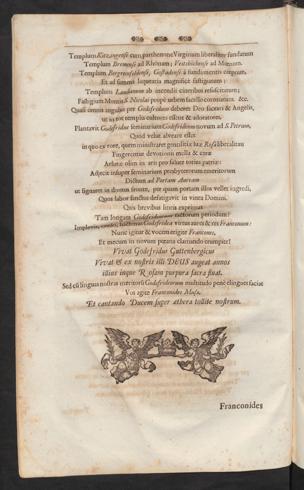 Templum Kitzingense cum parthenone Virginum liberaliter fundatum
Templum ad Rhenum; Veitshöchense ad Moenum.
Templum à fundamentis
Et ad summa liquetatis magnificè fastigatum:
Templum ab incendii cineribus resuscitatum;
Fastigium Montis S. Nicolai propè urbem sacello coronatum. &c.
Quasi omnis angulus per Godefridum deberet Deo sacrari & Angelis,
ut in tot templis cultores esset & adoratores.
Plantavit Godefridus seminarium Godefridinum novum ad S. Petrum,
Quid velut alveare esset
in quo ex rore, quem ministraret gemilitia hæc Rosa liberalitati
Fingerentur devotionis mella & ceræ
Arsuræ olim in aris pro salute totius patriæ:
Adjecit insuper seminarium presbyterorum emeritorum
Dictum ad Portam Auream
ut signaret in domus fronte, per quam portam illos vellet ingredi,
Quos labor sanctus defatigavit in vinea Domini.
Quis brevibus linris exprimat
Tam longam Godefridinarum ractionum periodum?
Implevit, videtis, hactenus Godefridea virtus aures & res Franconum:
Nunc igitur & vocem erigite Francones,
Et mecum in novum paratu clamando erumpite!
Vivat Godefridus Guttenbergicus
Vivat & ex nostris illi DEUS augeat annos
illius inque Rosam purpura sacra fluat.
Sed ea lingua nostra meritorū Godefridinorum multitudo penè elingues faciat
Vos agite Franconides Musæ,
Et cantando Ducem super æthera tollite nostrum.
Franconides